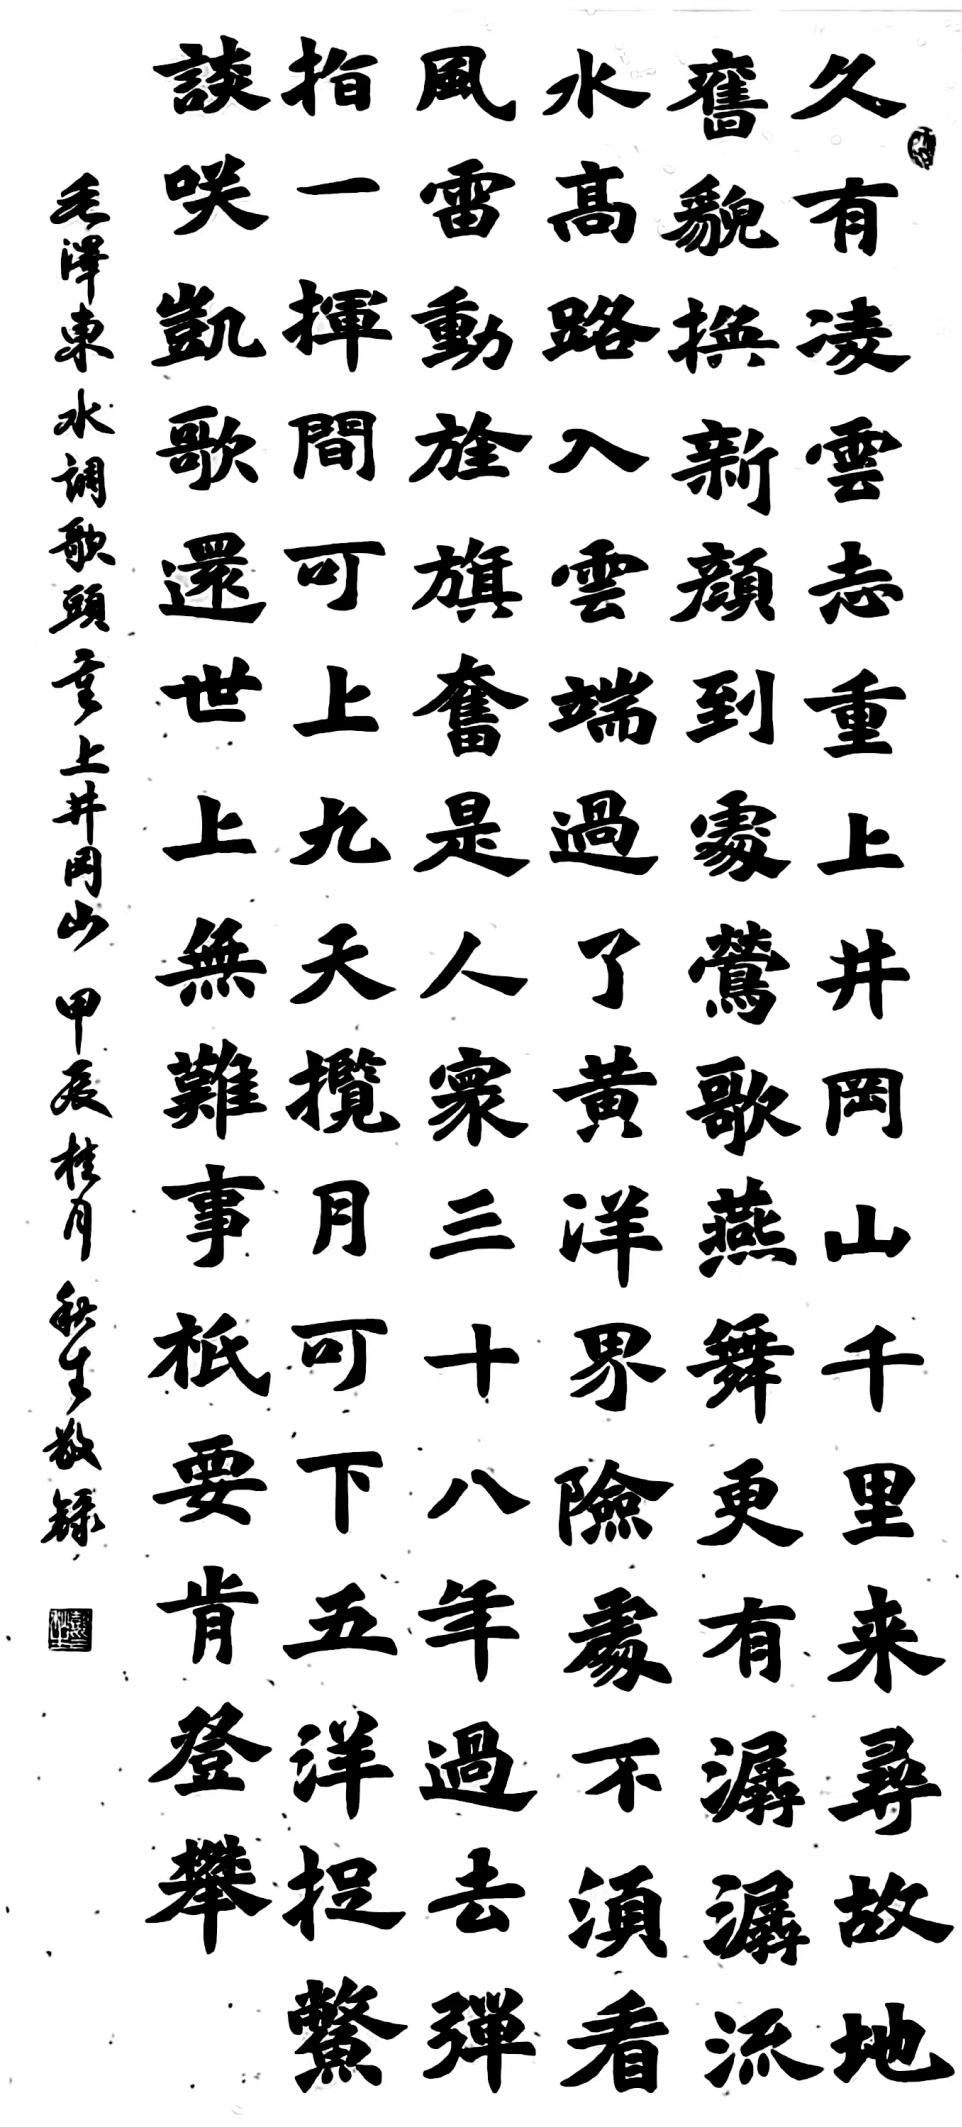 久有凌雲志重上井岡山千里来尋故地
舊貌換新顏到處鶯歌燕舞更有潺潺流
水髙路入雲端過了黃洋界險處不須看
風雷動旌旗奮是人寰三十八年過去彈
指一揮間可上九天攬月可下五洋捉鱉
談咲凱歌還世上無難事衹要肯登攀
毛澤東水調歌頭重上井岡山 甲辰桂月秋生敬録